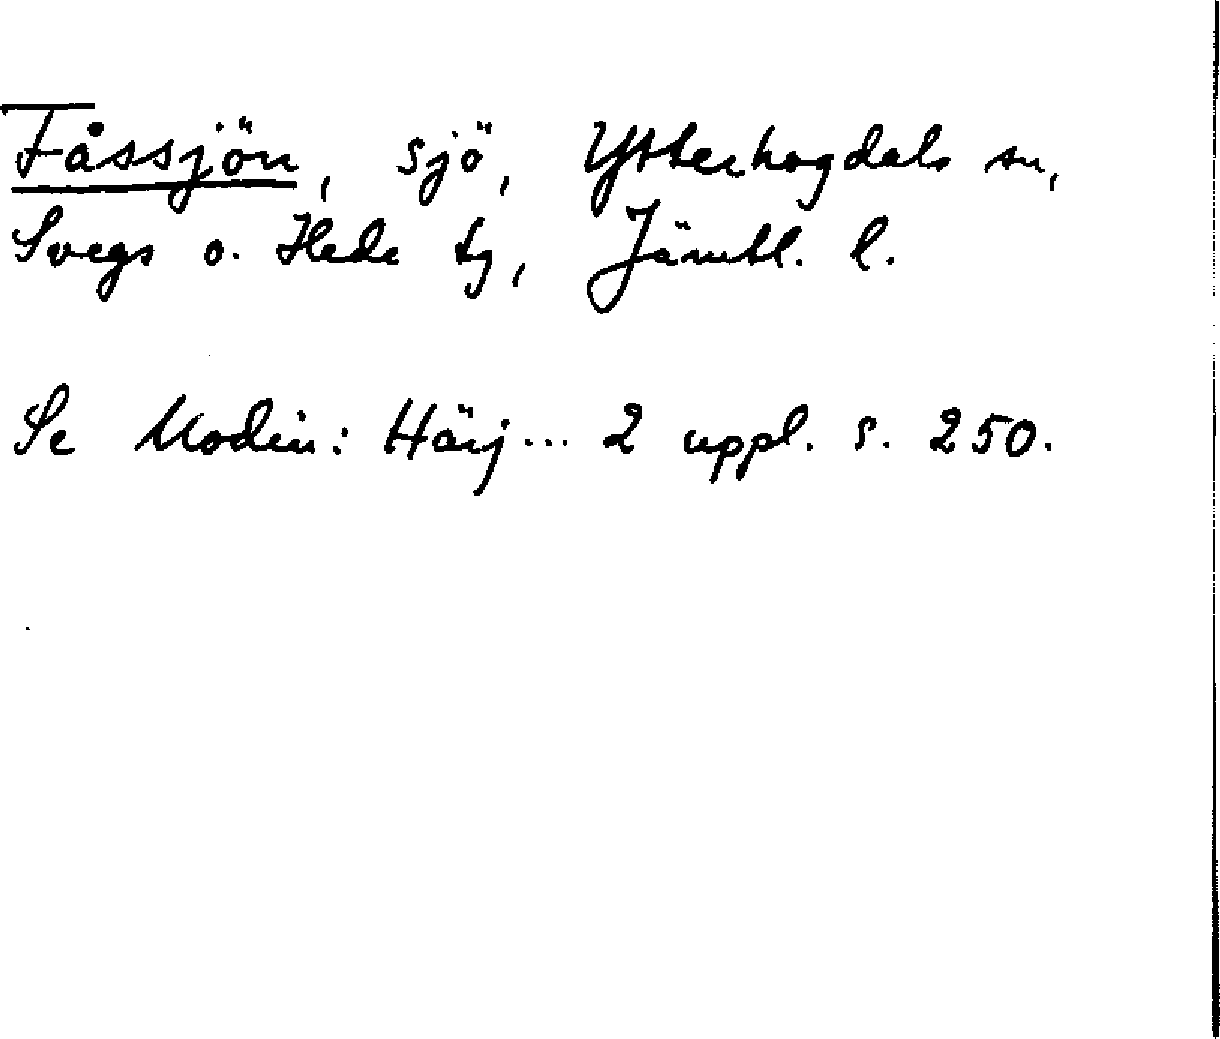 Fåssjön, sjö, Ytterhogdals sn,
Svegs o. Hede tg, Jämtl. l.
Se Modin: Härj... 2 uppl. s. 250.